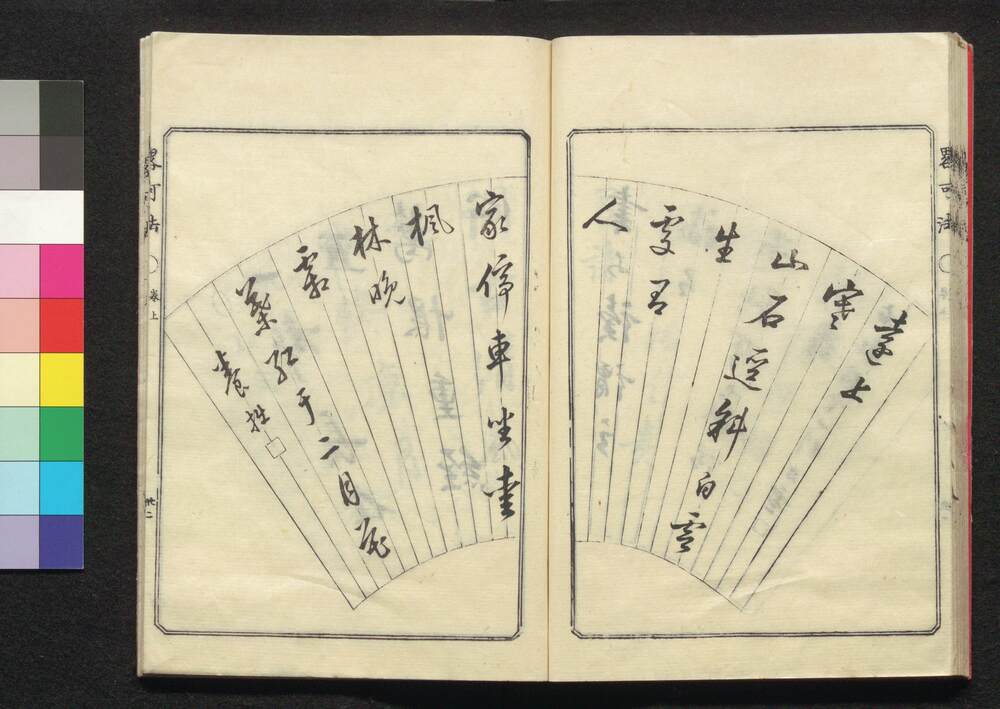 畧可法
遠上
寒
山石逕斜白雲
生
處有
人
家停車坐愛
楓
林晚
霜
葉紅于二月花
養拙
畧可法 〇 卷上 廿二